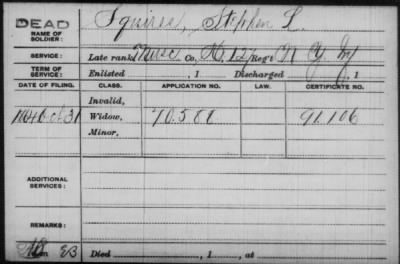 DEAD
NAME OF SOLDIER: Squires, Stephen L.
SERVICE: Late rank Musc Co. H, 127 Reg't N Y Inf
TERM OF SERVICE: Enlisted , 1 Discharged , 1
DATE OF FILING. CLASS. APPLICATION NO. LAW. CERTIFICATE NO.
Invalid,
Widow, 70.581 91.106
Minor,
ADDITIONAL SERVICES:
REMARKS:
Died , 1 , at